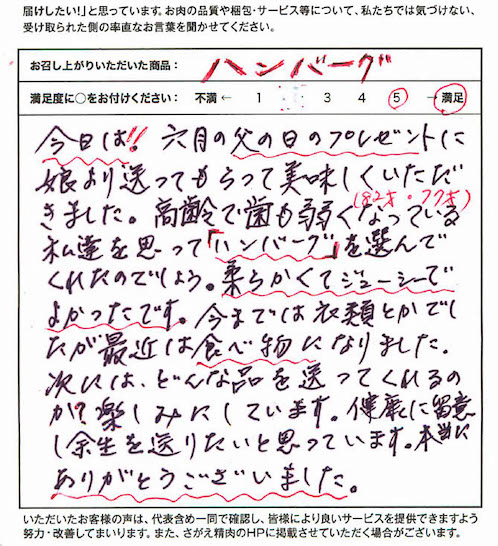 届けしたい！」と思っています。お肉の品質や梱包・サービス等について、私たちでは気づけない、
受け取られた側の率直なお言葉を聞かせてください。
お召し上がりいただいた商品： ハンバーグ
満足度に○をお付けください： 不満 ← 1 3 4 5 → 満足
今日は!! 六月の父の日のプレゼントに
娘より送ってもらって美味しくいただ
きました。高齢で歯も弱くなっている
(82才・77才)
私達を思って「ハンバーグ」を選んで
くれたのでしょう。柔らかくてジューシーで
よかったです。今までは衣類とかでし
たが最近は食べ物になりました。
次には、どんな品を送ってくれるの
か？楽しみにしています。健康に留意
し余生を送りたいと思っています。本当に
ありがとうございました。
いただいたお客様の声は、代表含め一同で確認し、皆様により良いサービスを提供できますよう
努力・改善してまいります。また、さがえ精肉のHPに掲載させていただく場合がございます。